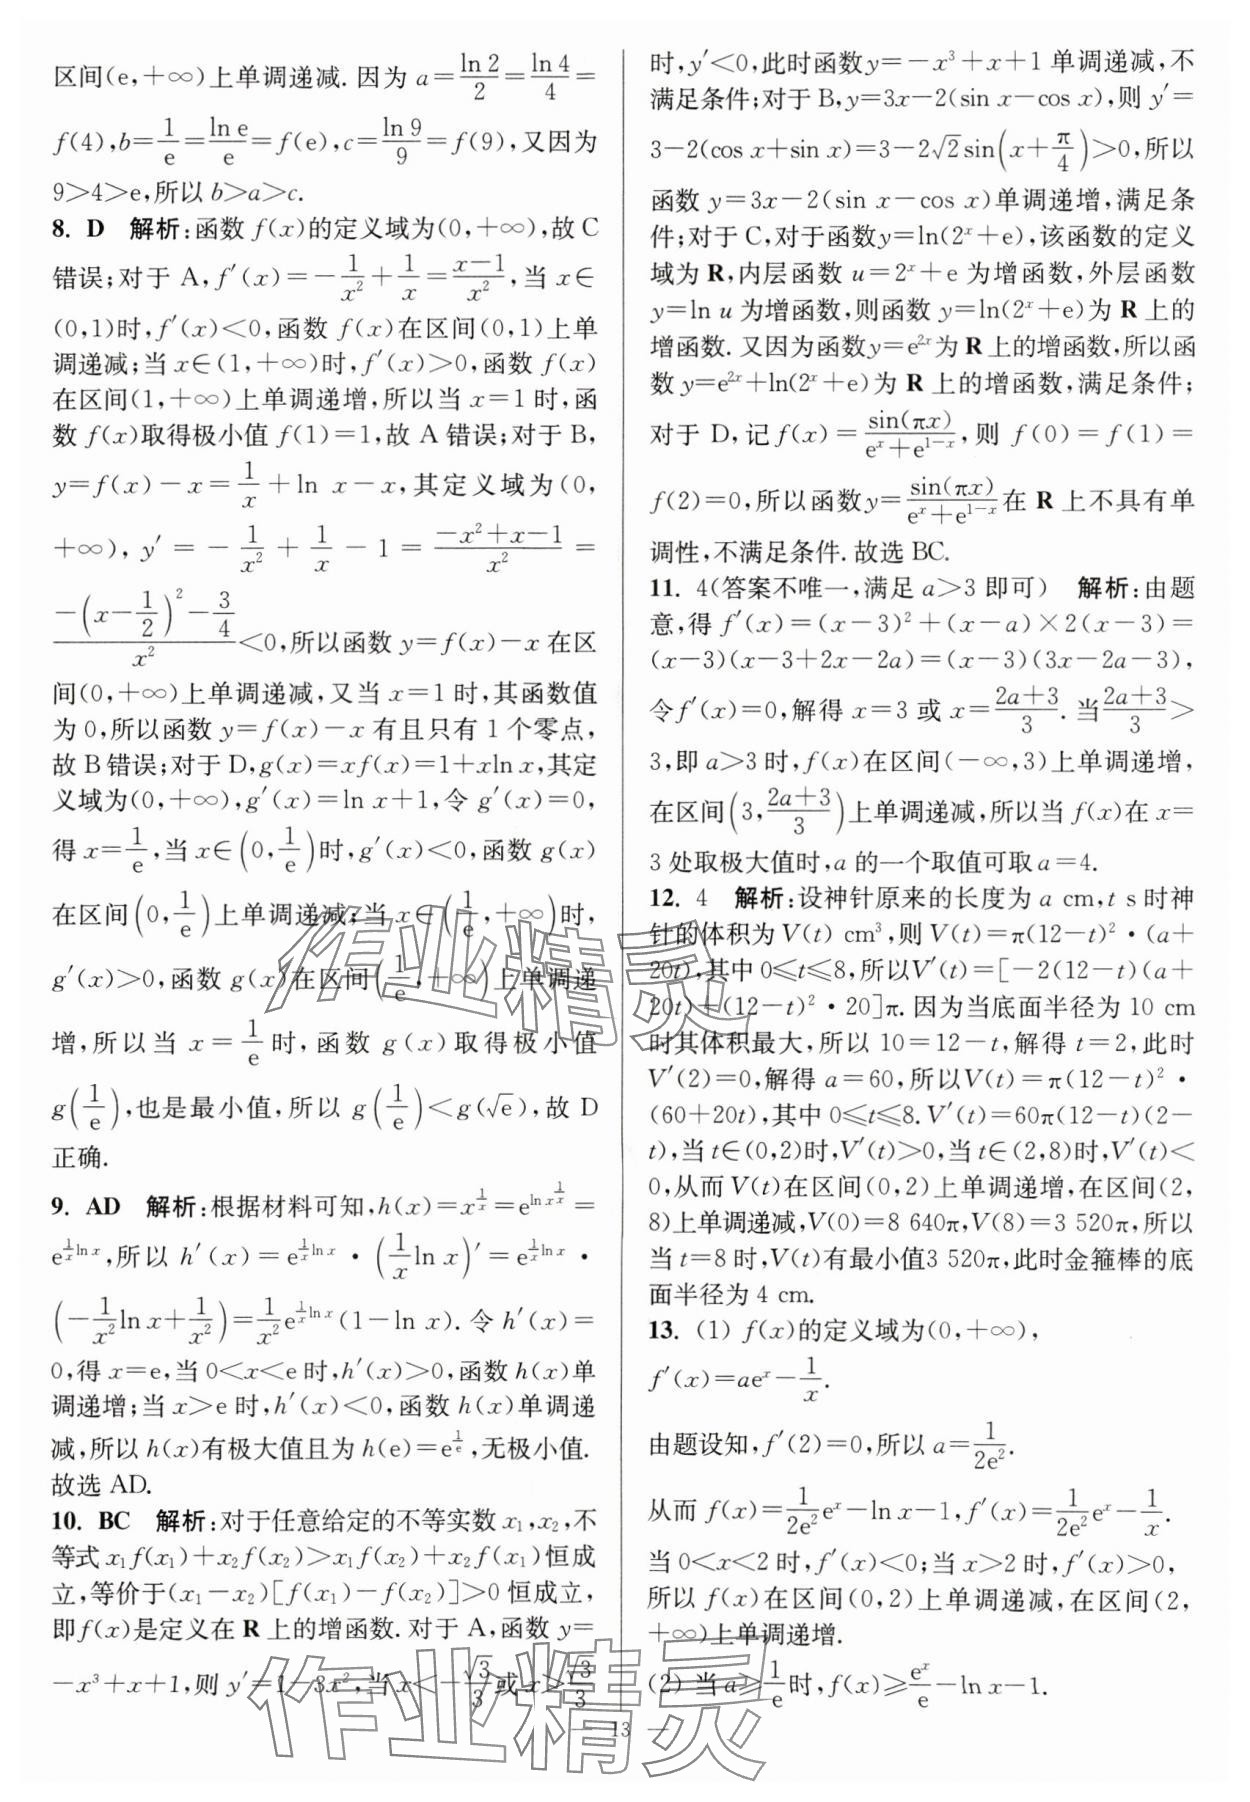 区间(e,+∞)上单调递减. 因为 a=ln 2/2=ln 4/4=
f(4),b=1/e=ln e/e=f(e),c=ln 9/9=f(9),又因为
9>4>e,所以 b>a>c.
8. D 解析:函数 f(x)的定义域为(0,+∞),故 C
错误;对于 A,f′(x)=-1/x²+1/x=(x-1)/x²,当 x∈
(0,1)时,f′(x)<0,函数 f(x)在区间(0,1)上单
调递减;当 x∈(1,+∞)时,f′(x)>0,函数 f(x)
在区间(1,+∞)上单调递增,所以当 x=1 时,函
数 f(x)取得极小值 f(1)=1,故 A 错误;对于 B,
y=f(x)-x=1/x+ln x-x,其定义域为(0,
+∞),y′=-1/x²+1/x-1=(-x²+x-1)/x²=
(-(x-1/2)²-3/4)/x²<0,所以函数 y=f(x)-x 在区
间(0,+∞)上单调递减,又当 x=1 时,其函数值
为 0,所以函数 y=f(x)-x 有且只有 1 个零点,
故 B 错误;对于 D,g(x)=xf(x)=1+xln x,其定
义域为(0,+∞),g′(x)=ln x+1,令 g′(x)=0,
得 x=1/e,当 x∈(0,1/e)时,g′(x)<0,函数 g(x)
在区间(0,1/e)上单调递减;当 x∈(1/e,+∞)时,
g′(x)>0,函数 g(x)在区间(1/e,+∞)上单调递
增,所以当 x=1/e时,函数 g(x)取得极小值
g(1/e),也是最小值,所以 g(1/e)<g(√e),故 D
正确.
9. AD 解析:根据材料可知,h(x)=x^(1/x)=e^(ln x^(1/x))=
e^(1/x ln x),所以 h′(x)=e^(1/x ln x)·(1/x ln x)′=e^(1/x ln x)·
(-1/x² ln x+1/x²)=1/x² e^(1/x ln x)(1-ln x). 令 h′(x)=
0,得 x=e,当 0<x<e 时,h′(x)>0,函数 h(x)单
调递增;当 x>e 时,h′(x)<0,函数 h(x)单调递
减,所以 h(x)有极大值且为 h(e)=e^(1/e),无极小值.
故选 AD.
10. BC 解析:对于任意给定的不等实数 x₁,x₂,不
等式 x₁f(x₁)+x₂f(x₂)>x₁f(x₂)+x₂f(x₁)恒成
立,等价于(x₁-x₂)[f(x₁)-f(x₂)]>0 恒成立,
即f(x)是定义在 R 上的增函数. 对于 A,函数 y=
-x³+x+1,则 y′=1-3x²,当 x<-√3/3或 x>√3/3
时,y′<0,此时函数y=-x³+x+1 单调递减,不
满足条件;对于 B,y=3x-2(sin x-cos x),则 y′=
3-2(cos x+sin x)=3-2√2sin(x+π/4)>0,所以
函数 y=3x-2(sin x-cos x)单调递增,满足条
件;对于 C,对于函数y=ln(2ˣ+e),该函数的定义
域为 R,内层函数 u=2ˣ+e 为增函数,外层函数
y=ln u 为增函数,则函数 y=ln(2ˣ+e)为 R 上的
增函数. 又因为函数y=e²ˣ为 R 上的增函数,所以函
数 y=e²ˣ+ln(2ˣ+e)为 R 上的增函数,满足条件;
对于 D,记 f(x)=sin(πx)/(eˣ+e¹⁻ˣ),则 f(0)=f(1)=
f(2)=0,所以函数y=sin(πx)/(eˣ+e¹⁻ˣ)在 R 上不具有单
调性,不满足条件. 故选 BC.
11. 4(答案不唯一,满足 a>3 即可) 解析:由题
意,得 f′(x)=(x-3)²+(x-a)×2(x-3)=
(x-3)(x-3+2x-2a)=(x-3)(3x-2a-3),
令f′(x)=0,解得 x=3 或 x=(2a+3)/3. 当(2a+3)/3>
3,即 a>3 时,f(x)在区间(-∞,3)上单调递增,
在区间(3,(2a+3)/3)上单调递减,所以当 f(x)在 x=
3 处取极大值时,a 的一个取值可取 a=4.
12. 4 解析:设神针原来的长度为 a cm,t s 时神
针的体积为 V(t) cm³,则 V(t)=π(12-t)²·(a+
20t),其中 0≤t≤8,所以V′(t)=[-2(12-t)(a+
20t)+(12-t)²·20]π. 因为当底面半径为 10 cm
时其体积最大,所以 10=12-t,解得 t=2,此时
V′(2)=0,解得 a=60,所以V(t)=π(12-t)²·
(60+20t),其中 0≤t≤8. V′(t)=60π(12-t)(2-
t),当 t∈(0,2)时,V′(t)>0,当 t∈(2,8)时,V′(t)<
0,从而 V(t)在区间(0,2)上单调递增,在区间(2,
8)上单调递减,V(0)=8 640π,V(8)=3 520π,所以
当 t=8 时,V(t)有最小值3 520π,此时金箍棒的底
面半径为 4 cm.
13. (1) f(x)的定义域为(0,+∞),
f′(x)=aeˣ-1/x.
由题设知,f′(2)=0,所以 a=1/(2e²).
从而 f(x)=1/(2e²)eˣ-ln x-1,f′(x)=1/(2e²)eˣ-1/x.
当 0<x<2 时,f′(x)<0;当 x>2 时,f′(x)>0,
所以 f(x)在区间(0,2)上单调递减,在区间(2,
+∞)上单调递增.
(2) 当 a≥1/e时,f(x)≥eˣ/e-ln x-1.
— 13 —
作业精灵
作业精灵